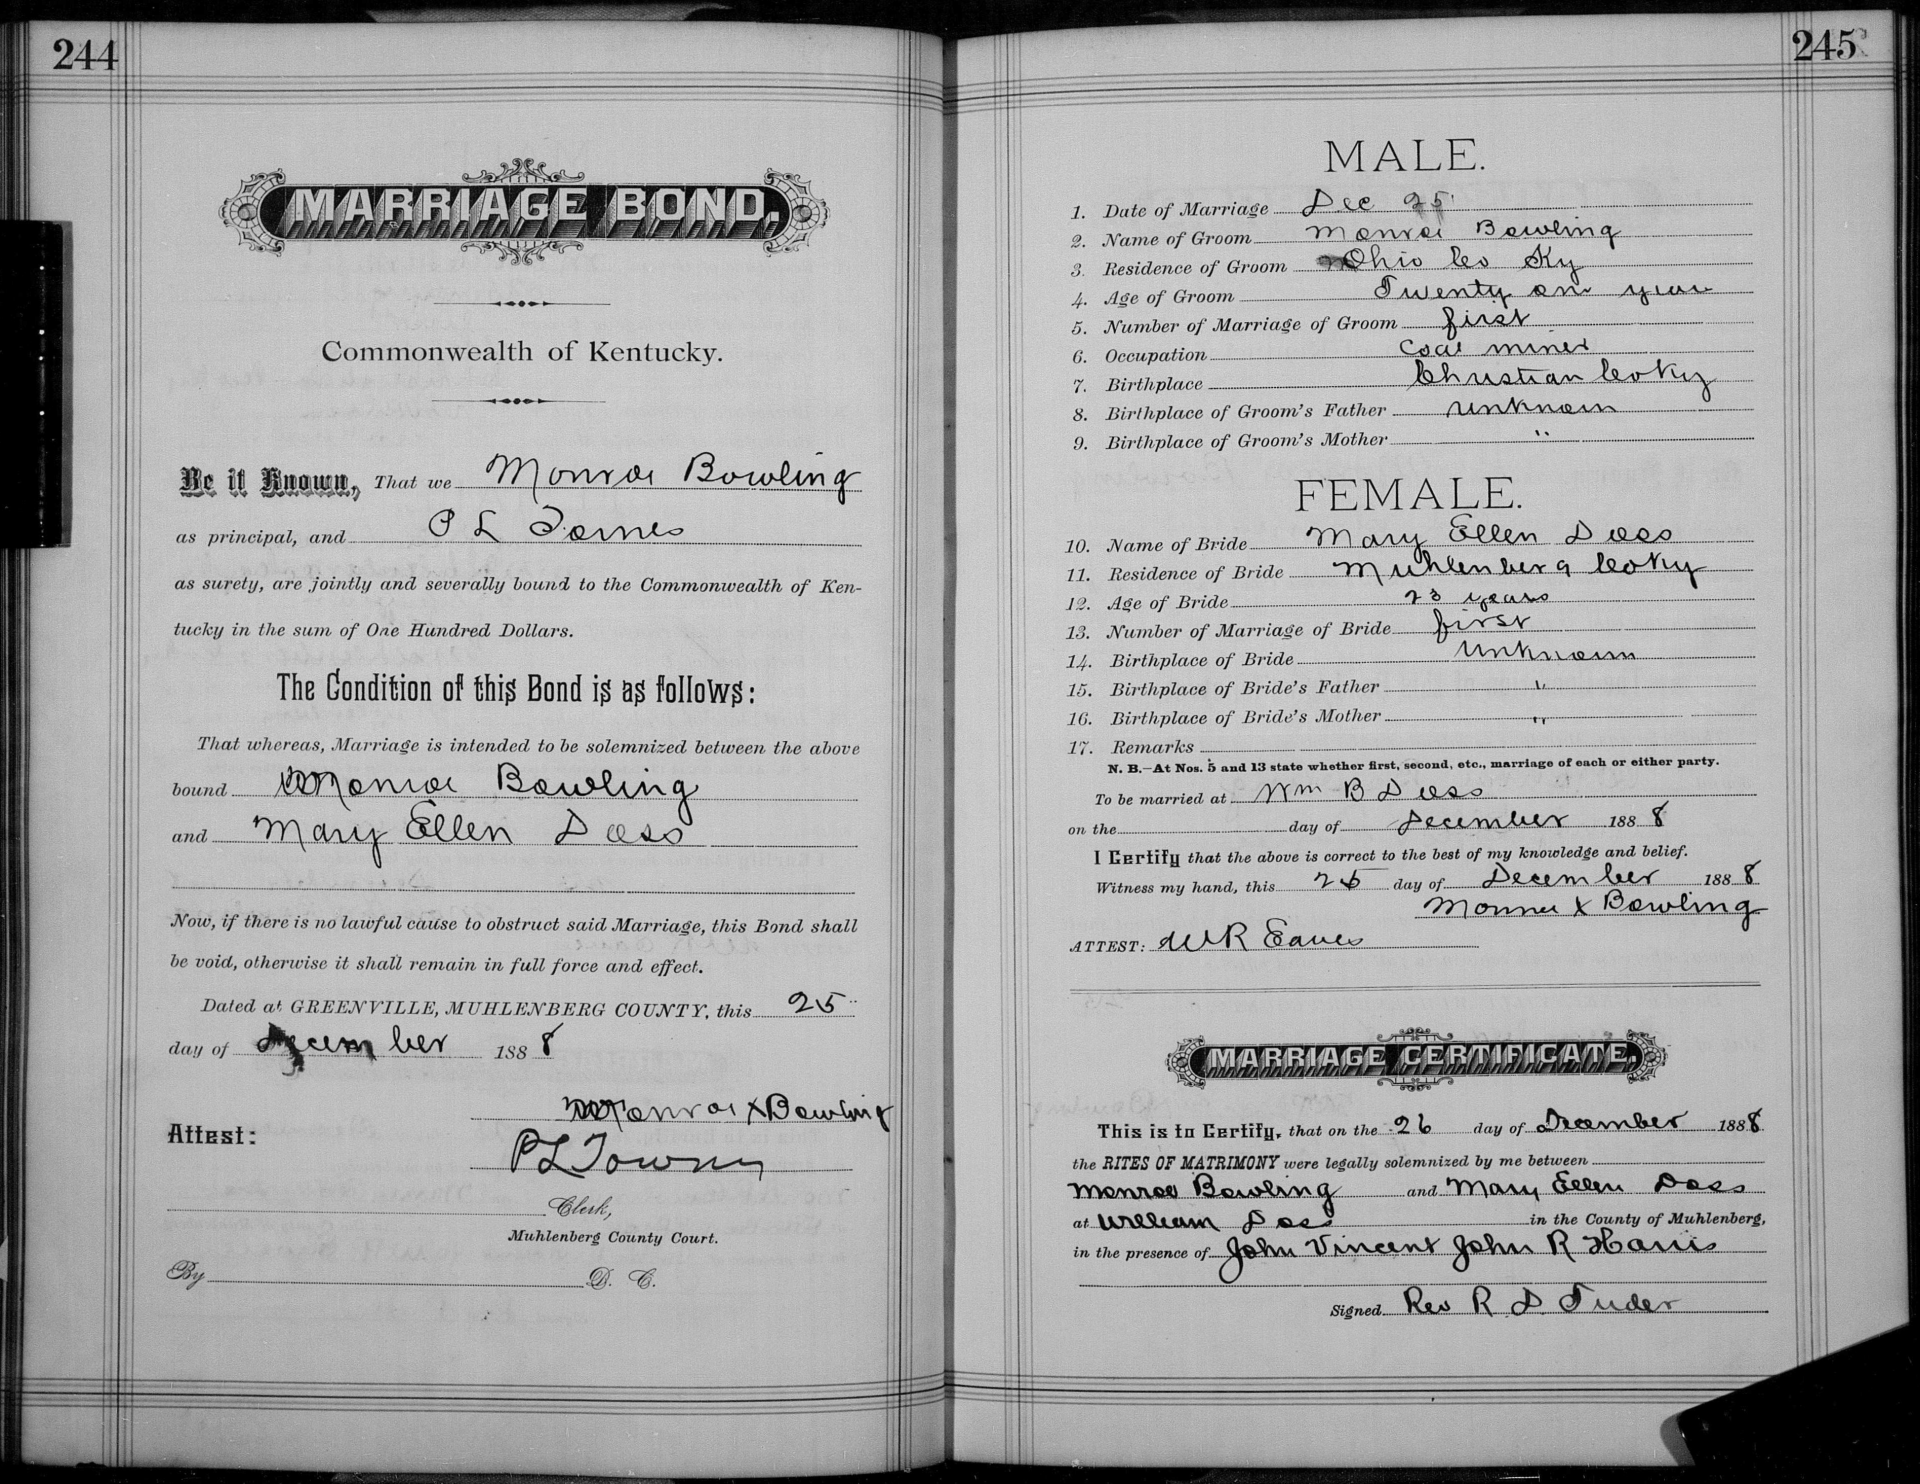 244
MARRIAGE BOND,
Commonwealth of Kentucky.
Be it Known, That we Monroe Bowling
as principal, and P L
as surety, are jointly and severally bound to the Commonwealth of Ken-
tucky in the sum of One Hundred Dollars.
The Condition of this Bond is as follows:
That whereas, Marriage is intended to be solemnized between the above
bound Monroe Bowling
and Mary Ellen Doss
Now, if there is no lawful cause to obstruct said Marriage, this Bond shall
be void, otherwise it shall remain in full force and effect.
Dated at GREENVILLE, MUHLENBERG COUNTY, this 25
day of December 1888
Monroe X Bowling
Attest: P L
Clerk,
Muhlenberg County Court.
By D. C.
245
MALE.
1. Date of Marriage Dec 25
2. Name of Groom Monroe Bowling
3. Residence of Groom Ohio Co Ky
4. Age of Groom Twenty one years
5. Number of Marriage of Groom first
6. Occupation Coal miner
7. Birthplace Christian Co Ky
8. Birthplace of Groom's Father unknown
9. Birthplace of Groom's Mother "
FEMALE.
10. Name of Bride Mary Ellen Doss
11. Residence of Bride Muhlenberg Co Ky
12. Age of Bride 23 years
13. Number of Marriage of Bride first
14. Birthplace of Bride unknown
15. Birthplace of Bride's Father "
16. Birthplace of Bride's Mother "
17. Remarks
N. B.—At Nos. 5 and 13 state whether first, second, etc., marriage of each or either party.
To be married at Wm B Doss
on the day of December 1888
I Certify that the above is correct to the best of my knowledge and belief.
Witness my hand, this 25 day of December 1888
Monroe X Bowling
ATTEST: W R Eaves
MARRIAGE CERTIFICATE.
This is to Certify, that on the 26 day of December 1888
the RITES OF MATRIMONY were legally solemnized by me between
Monroe Bowling and Mary Ellen Doss
at William Doss in the County of Muhlenberg,
in the presence of John Vincent John R Harris
Signed Rev R D Tuder